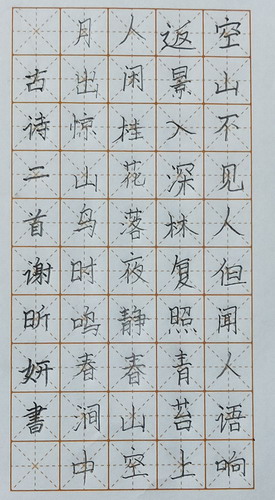 空山不见人但闻人语响
返景入深林复照青苔上
人闲桂花落夜静春山空
月出惊山鸟时鸣春涧中
古诗二首谢昕妍書